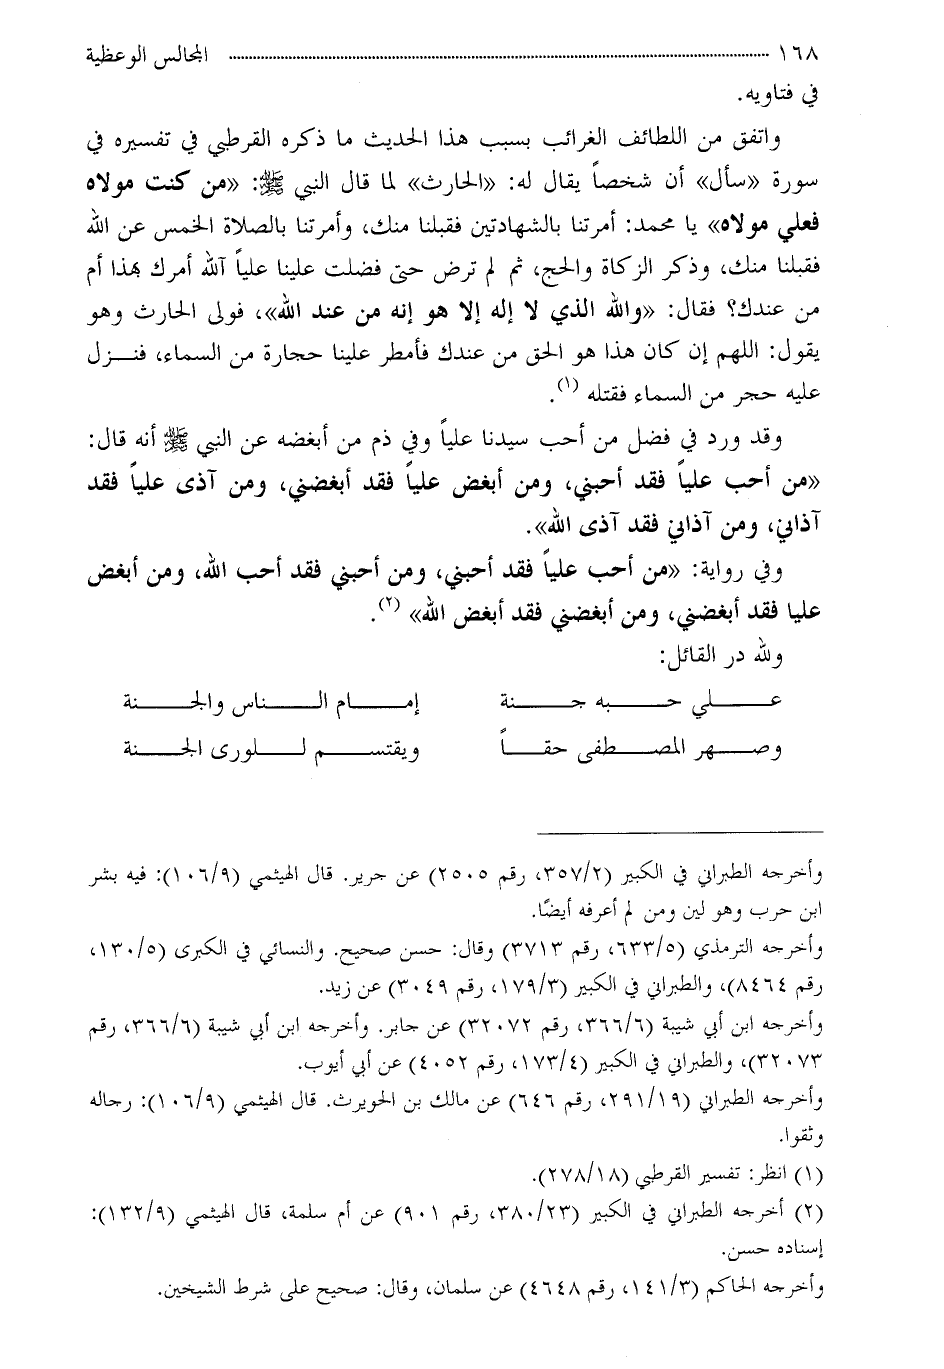 ١٦٨ ........................................................ المجالس الوعظية
في فتاويه.
واتفق من اللطائف الغرائب بسبب هذا الحديث ما ذكره القرطبي في تفسيره في
سورة «سأل» أن شخصاً يقال له: «الحارث» لما قال النبي ﷺ: «من كنت مولاه
فعلي مولاه» يا محمد: أمرتنا بالشهادتين فقبلنا منك، وأمرتنا بالصلاة الخمس عن الله
فقبلنا منك، وذكر الزكاة والحج، ثم لم ترض حتى فضلت علينا علياً آلله أمرك بهذا أم
من عندك؟ فقال: «والله الذي لا إله إلا هو إنه من عند الله»، فولى الحارث وهو
يقول: اللهم إن كان هذا هو الحق من عندك فأمطر علينا حجارة من السماء، فنـــزل
عليه حجر من السماء فقتله (١).
وقد ورد في فضل من أحب سيدنا علياً وفي ذم من أبغضه عن النبي ﷺ أنه قال:
«من أحب علياً فقد أحبني، ومن أبغض علياً فقد أبغضني، ومن آذى علياً فقد
آذاني، ومن آذاني فقد آذى الله».
وفي رواية: «من أحب علياً فقد أحبني، ومن أحبني فقد أحب الله، ومن أبغض
عليا فقد أبغضني، ومن أبغضني فقد أبغض الله» (٢).
ولله در القائل:
عـــــلي حــــبه جـــنة إمـــــام الـــــناس والجـــــنة
وصـــهر المصـــطفى حقـــاً ويقتســـم لـــلورى الجـــنة
وأخرجه الطبراني في الكبير (٣٥٧/٢، رقم ٢٥٠٥) عن جرير. قال الهيثمي (١٠٦/٩): فيه بشر
ابن حرب وهو لين ومن لم أعرفه أيضًا.
وأخرجه الترمذي (٦٣٣/٥، رقم ٣٧١٣) وقال: حسن صحيح. والنسائي في الكبرى (١٣٠/٥،
رقم ٨٤٦٤)، والطبراني في الكبير (١٧٩/٣، رقم ٣٠٤٩) عن زيد.
وأخرجه ابن أبي شيبة (٣٦٦/٦، رقم ٣٢٠٧٢) عن جابر. وأخرجه ابن أبي شيبة (٣٦٦/٦، رقم
٣٢٠٧٣)، والطبراني في الكبير (١٧٣/٤، رقم ٤٠٥٢) عن أبي أيوب.
وأخرجه الطبراني (٢٩١/١٩، رقم ٦٤٦) عن مالك بن الحويرث. قال الهيثمي (١٠٦/٩): رجاله
وثقوا.
(١) انظر: تفسير القرطبي (٢٧٨/١٨).
(٢) أخرجه الطبراني في الكبير (٣٨٠/٢٣، رقم ٩٠١) عن أم سلمة، قال الهيثمي (١٣٢/٩):
إسناده حسن.
وأخرجه الحاكم (١٤١/٣، رقم ٤٦٤٨) عن سلمان، وقال: صحيح على شرط الشيخين.